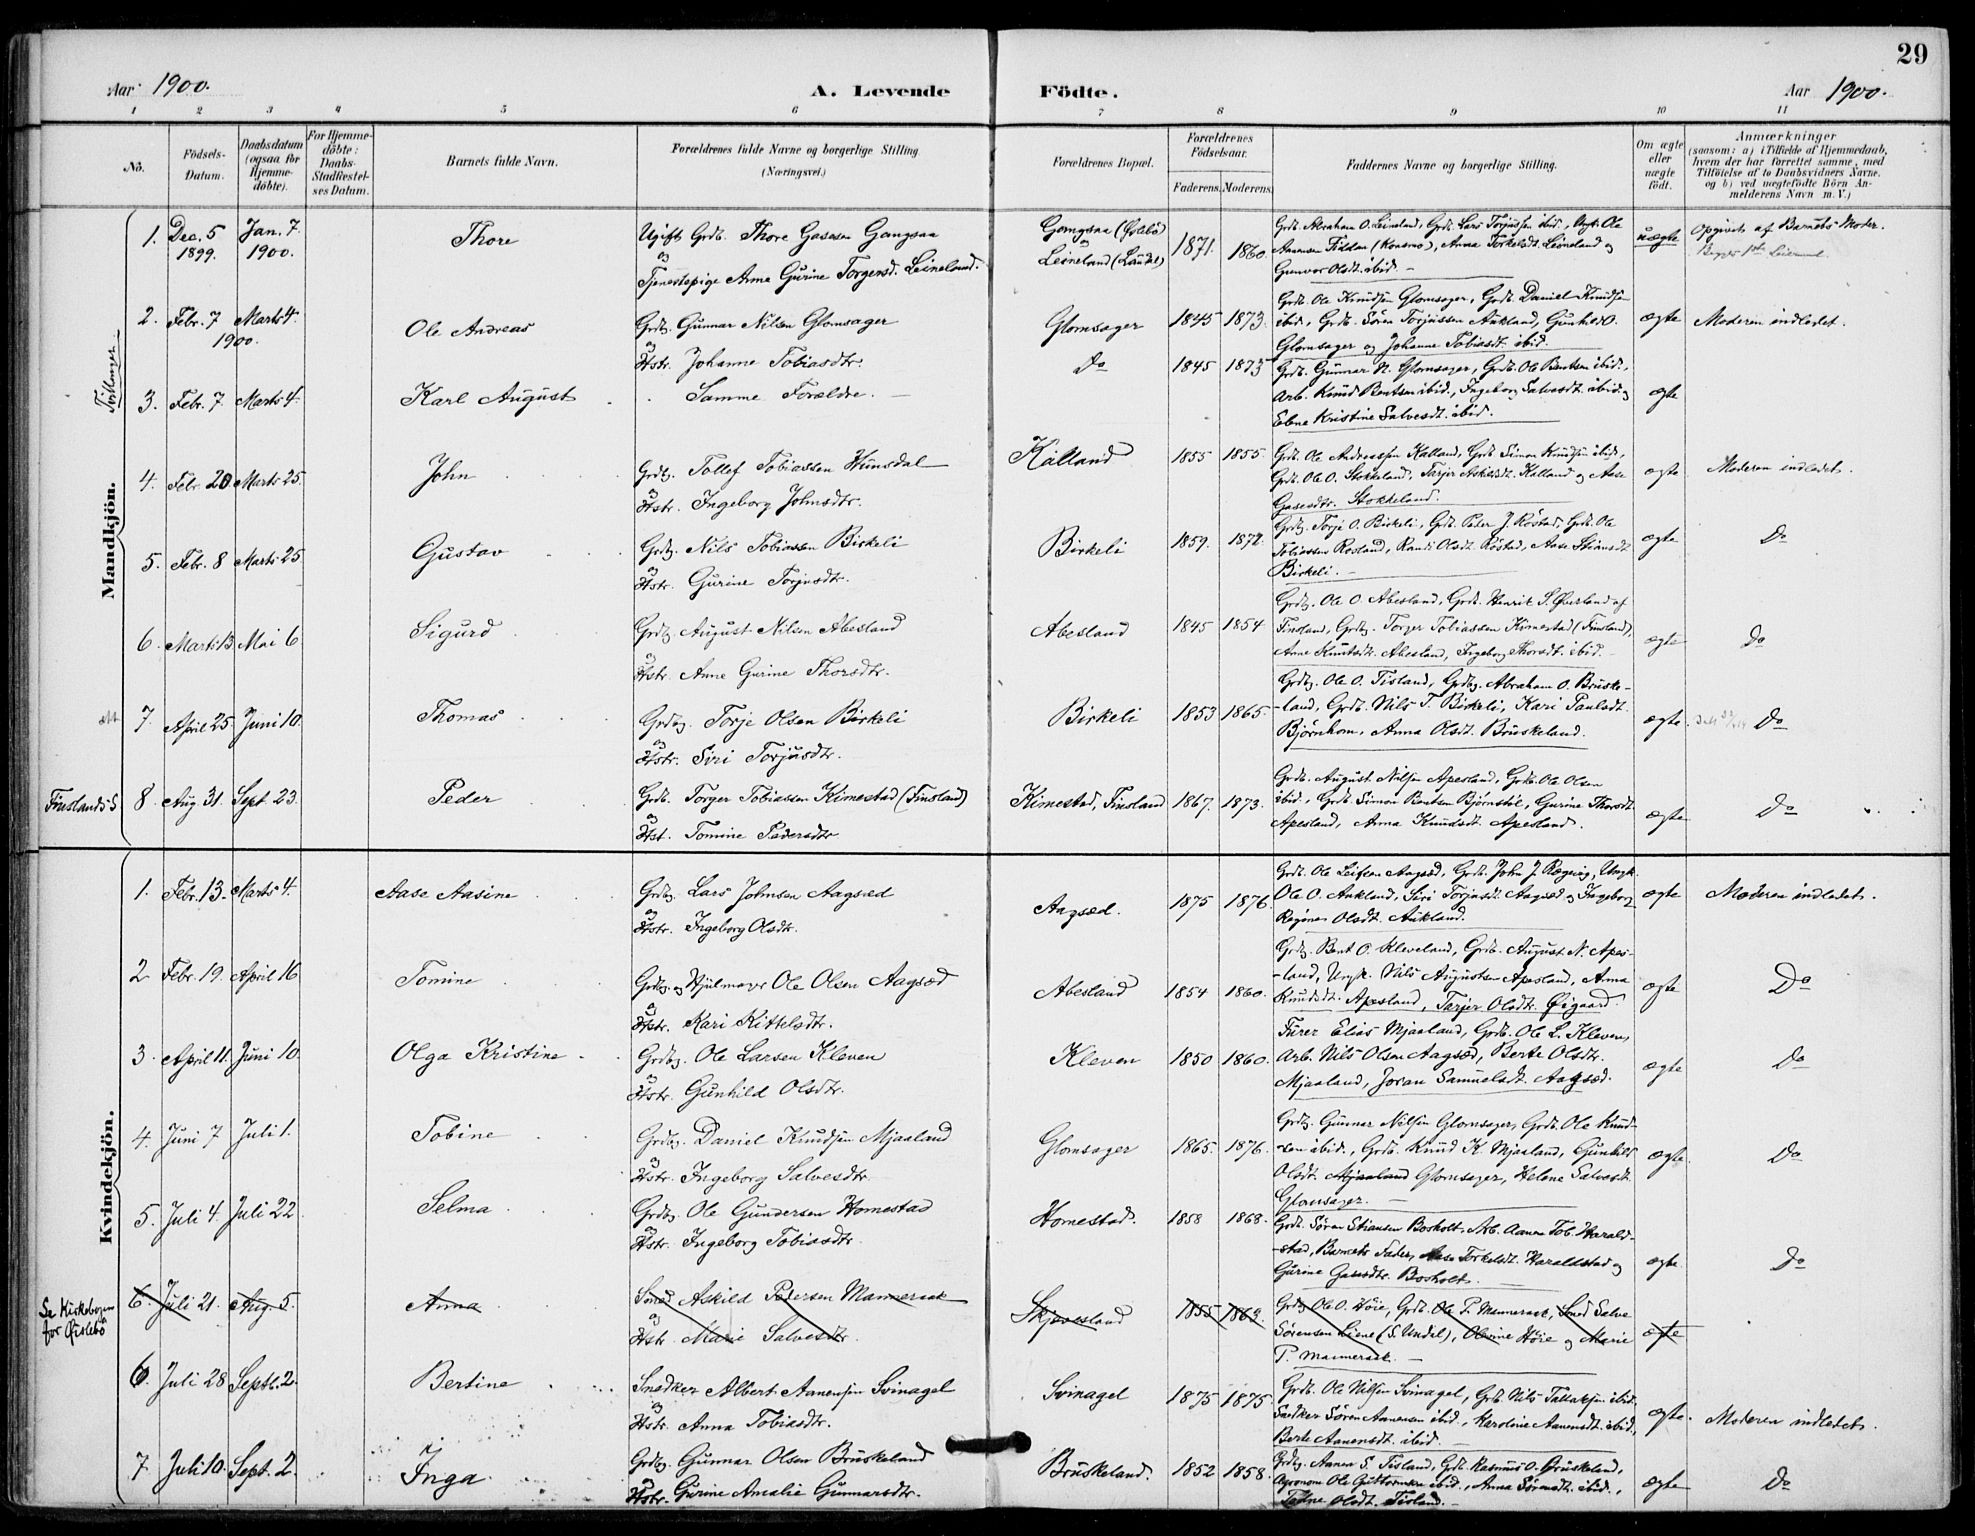 29
Aar 1900.
A. Levende Födte.
Aar 1900.
1 2 3 4 5 6 7 8 9 10 11
Nô.
Födsels-Datum.
Daabsdatum (ogsaa for Hjemme-döbte).
For Hjemme-döbte: Daabs-Stadfæstel-ses Datum.
Barnets fulde Navn.
Forældrenes fulde Navne og borgerlige Stilling (Næringsvei.)
Forældrenes Bopæl.
Forældrenes Födselsaar.
Faderens. Moderens.
Faddernes Navne og borgerlige Stilling.
Om ægte eller uægte födt.
Anmærkninger
(saasom: a) i Tilfælde af Hjemmedaab,
hvem der har forrettet samme, med
Tilföielse af to Daabsvidners Navne.
og b) ved uægtefödte Börn An-
melderens Navn m.V.)
Mandkjön.
Tvillinger
1. Dec. 5 1899. Jan. 7. 1900. Thore
Ugift Grdb. Thore Gasesen Gangsaa
og
Tjenestepige Anna Gurine Torgersd. Leineland.
Leineland (Laudal) 1871. 1860.
Gunvor Olsdt. ibid. —
uægte Opgivet af Barnets Moder.
2. Febr. 7 1900. Marts 4. Ole Andreas
Grdbr. Gunnar Nilsen Glomsager
og
Hstr. Johanne Tobiasdtr.
Glomsager 1845 1873.
Grdb. Ole Knudsen Glomsager, Grdb. Daniel Knudsen
ibid., Grdb. Sören Torjussen Aukland, Gunhild O.
Glomsager og Johanne Tobiasdt. ibid.
ægte Moderen indledet.
3. Febr. 7 Marts 4. Karl August
Samme Forældre. —
Do 1845 1873
Grdb. Gunnar N. Glomsager, Grdb. Ole Bentsen ibid.,
Arb. Knud Bentsen ibid., Ingeborg Salvesdt. ibid. og
Elene Kristine Salvesdt. ibid.
ægte
4. Febr. 20 Marts 25. John
Grdbr. Tollef Tobiassen Hunsdal
og
Hstr. Ingeborg Johnsdtr.
Kalland 1855 1855.
Grdb. Ole Andreassen Kalland, Grdb. Simon Knudsen ibid.,
Grdb. Ole O. Stokkeland, Tarjer Askildsdt. Kalland og Aase
Gasesdtr. Stokkeland.
ægte Moderen indledet.
5. Febr. 8 Marts 25 Gustav
Grdbr. Nils Tobiassen Birkeli
og
Hstr. Gurine Torjusdtr.
Birkeli 1859. 1872.
Grdbr. Torje O. Birkeli, Grdb. Peter J. Röstad, Grdb. Ole
Tobiassen Rosland, Randi Olsdt. Röstad, Aase Stiansdt
Birkeli. —
ægte Do
6. Marts 13. Mai 6. Sigurd
Grdbr. August Nilsen Abesland
og
Hstr. Anne Gurine Thorsdtr.
Abesland 1845 1854
Grdbr. Ole O. Abesland, Grdb. Henrik S. Øverland af
Finsland, Grdbr. Torger Tobiassen Kimestad (Finsland),
Anne Knutsdtr. Abesland, Ingeborg Thorsdt. ibid.
ægte Do
7. April 25. Juni 10. Thomas
Grdbr. Torje Olsen Birkeli
og
Hstr. Siri Torjusdtr.
Birkeli 1853 1865.
Grdbr. Ole O. Tisland, Grdbr. Abraham O. Bruske-
-land, Grdb. Nils T. Birkeli, Kari Paulsdt.
Bjørnhom, Anna Olsdt. Bruskeland.
ægte Do
Finslands S.
8. Aug 31. Sept. 23. Peder
Grdb. Torger Tobiassen Kimestad (Finsland)
og
Hst. Tomine Pedersdtr
Kimestad, Finsland 1867. 1873.
Grdb. August Nilsen Apesland, Grdb. Ole Olsen
ibid., Grdb. Simon Bentsen Bjørnstöl, Gurine Thorsdt.
Apesland, Anna Knudsdt. Apesland.
ægte Do
Kvindekjön.
1. Febr. 13. Marts 4. Aase Aasine
Grdbr. Lars Johnsen Aagsæd
og
Hstr. Ingeborg Olsdtr.
Aagsæd. 1875 1876.
Ole O. Aukland, Siri Torjusdt. Aagsæd og Ingeborg
Regine Olsdt. Aukland.
ægte Moderen indledet.
2 Febr. 19. April 16 Tomine
Grdbr. og Hjulmager Ole Olsen Aagsæd
og
Hstr. Kari Kittelsdtr.
Abesland 1854 1860.
Grdbr. Bent O. Kleveland, Grdb. August N. Apes-
-land, Ungk. Nils Augustsen Apesland, Anna
Knudsdt. Apesland, Tarjer Olsdtr. Øigaard.
ægte Do
3. April 11. Juni 10. Olga Kristine
Grdbr. Ole Larsen Kleven
og
Hstr. Gunhild Olsdtr.
Kleven 1850 1860.
Furer Elias Mjaaland, Grdb. Ole L. Kleven,
Arb. Nils Olsen Aagsæd, Berte Olsdtr.
Mjaaland, Joran Samuelsdt. Aagsæd.
ægte Do
4. Juni 7 Juli 1. Tobine
Grdbr. Daniel Knudsen Mjaaland
og
Hstr. Ingeborg Salvesdtr.
Glomsager 1865. 1876.
Grdbr. Gunnar Nilsen Glomsager, Grdb. Ole Knud-
-sen ibid., Grdb. Knud K. Mjaaland, Gunhild
Olsdt. Mjaaland Glomsager, Helene Salvesdt.
Glomsager. —
ægte Do
5. Juli 4. Juli 22 Selma
Grdbr. Ole Gundersen Homestad
og
Hstr. Ingeborg Tobiasdtr.
Homestad. 1858 1868.
Grdb. Sören Stiansen Bosholt, Arb. Aanen Tob. Harald-
-stad, Barnets Fader, Aase Torkelsdt. Haraldstad og
Gurine Gasesdtr. Bosholt. —
ægte Do
Se Kirkebogen for Øislebö
6. Juli 21. Aug. 5. Anna
Smed Askild Pedersen Mannersak
og
Hstr. Marie Salvesdtr.
Skjævesland 1855 1863.
Grdbr. Ole O. Höie, Grdb. Ole P. Mannersak, Smed Salve
Sörensen Liene (S. Undal), Olevine Höie og Marie
P. Mannersak. —
ægte
6 Juli 28 Septb. 2. Bertine
Snedker Albert Aanensen Svinagel
og
Hstr. Anna Tobiasdtr.
Svinagel 1875 1875.
Grdb. Ole Nilsen Svinagel, Grdb. Nils Tallaksen ibid.
Snedker Sören Aanensen ibid., Karoline Aanensdt. ibid.,
Berte Aanensdt. ibid. —
ægte. Moderen indledet.
7 Juli 10. Sept. 2. Inga
Grdbr. Gunnar Olsen Bruskeland
og
Hstr. Gurine Amalie Gunnarsdtr.
Bruskeland. 1852 1858.
Grdbr. Aanen S. Tisland, Grdb. Rasmus O. Bruskeland,
Agronom Ole Guttormsen ibid., Anna Sörensdt. ibid.,
Olsdt. Tisland. —
ægte Do